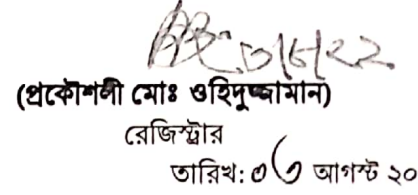 (প্রকৌশলী মোঃ ওহিদুজ্জামান)
রেজিস্ট্রার
তারিখ: আগস্ট ২০